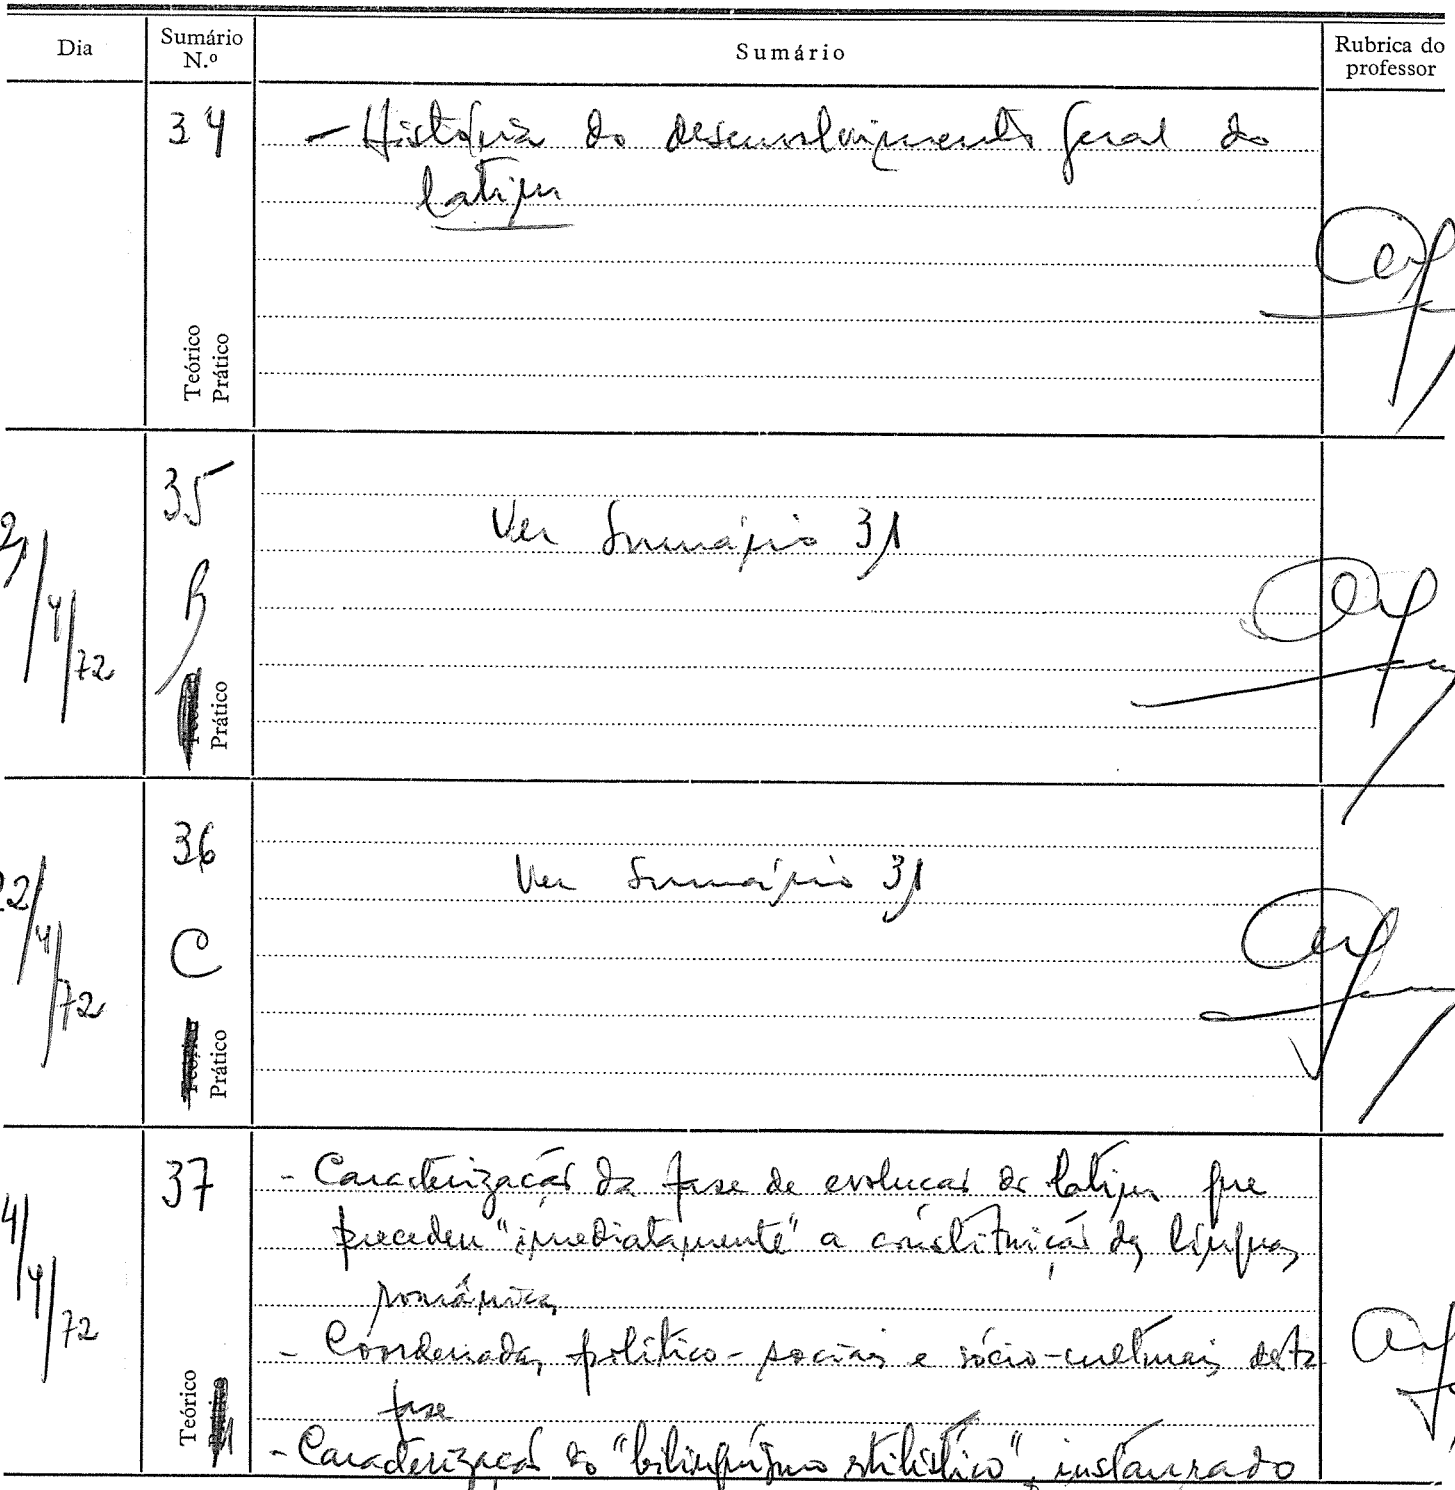 Dia
Sumário N.º
Sumário
Rubrica do professor
34
- História do desenvolvimento geral do
latim
Teórico
Prático
21/4/72
35
B
Ver Sumário 31
Prático
22/4/72
36
C
Ver Sumário 31
Prático
4/4/72
37
- Caracterização da fase de evolução do latim que
precedeu "imediatamente" a constituição das línguas
românicas
- Coordenadas político-sociais e sócio-culturais desta
fase
- Caracterização do "bilinguismo estilístico", instaurado
Teórico